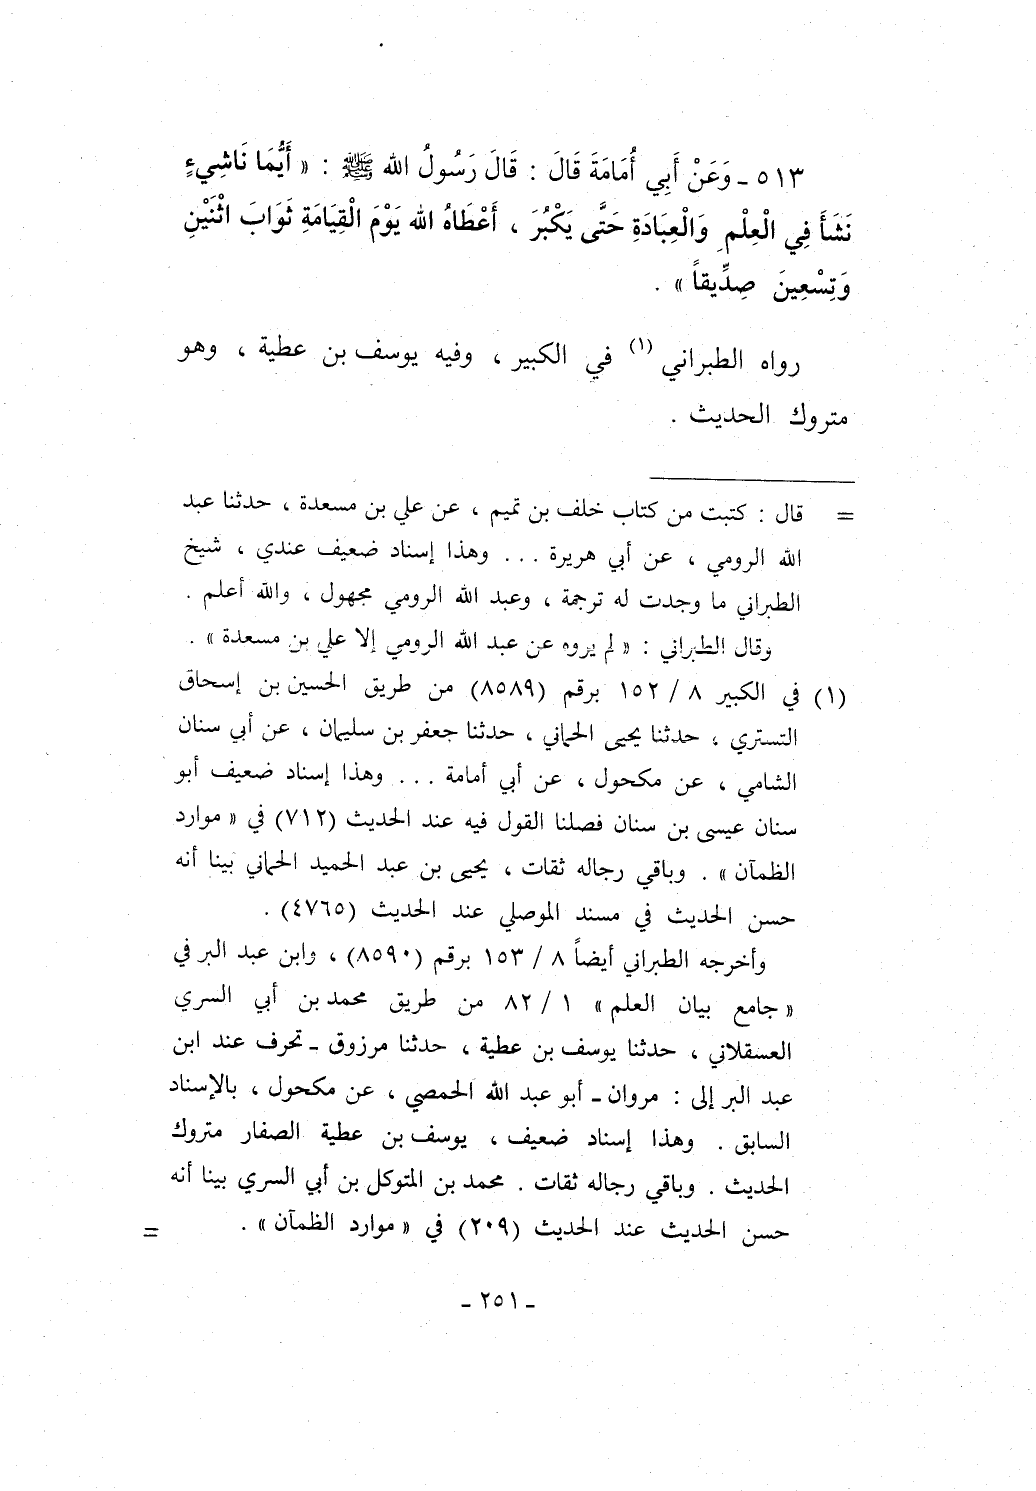 ٥١٣ ـ وَعَنْ أَبِي أُمَامَةَ قَالَ : قَالَ رَسُولُ الله ﷺ : « أَيُّمَا نَاشِيءٍ
نَشَأَ فِي الْعِلْمِ وَالْعِبَادَةِ حَتَّى يَكْبُرَ ، أَعْطَاهُ الله يَوْمَ الْقِيَامَةِ ثَوَابَ اثْنَيْنِ
وَتِسْعِينَ صِدِّيقاً » .
رواه الطبراني (١) في الكبير ، وفيه يوسف بن عطية ، وهو
متروك الحديث .
= قال : كتبت من كتاب خلف بن تميم ، عن علي بن مسعدة ، حدثنا عبد
الله الرومي ، عن أبي هريرة ... وهذا إسناد ضعيف عندي ، شيخ
الطبراني ما وجدت له ترجمة ، وعبد الله الرومي مجهول ، والله أعلم .
وقال الطبراني : « لم يروه عن عبد الله الرومي إلا علي بن مسعدة » .
(١) في الكبير ٨ / ١٥٢ برقم (٨٥٨٩) من طريق الحسين بن إسحاق
التستري ، حدثنا يحيى الحماني ، حدثنا جعفر بن سليمان ، عن أبي سنان
الشامي ، عن مكحول ، عن أبي أمامة ... وهذا إسناد ضعيف أبو
سنان عيسى بن سنان فصلنا القول فيه عند الحديث (٧١٢) في « موارد
الظمآن » . وباقي رجاله ثقات ، يحيى بن عبد الحميد الحماني بينا أنه
حسن الحديث في مسند الموصلي عند الحديث (٤٧٦٥) .
وأخرجه الطبراني أيضاً ٨ / ١٥٣ برقم (٨٥٩٠) ، وابن عبد البر في
« جامع بيان العلم » ١ / ٨٢ من طريق محمد بن أبي السري
العسقلاني ، حدثنا يوسف بن عطية ، حدثنا مرزوق ـ تحرف عند ابن
عبد البر إلى : مروان ـ أبو عبد الله الحمصي ، عن مكحول ، بالإسناد
السابق . وهذا إسناد ضعيف ، يوسف بن عطية الصفار متروك
الحديث . وباقي رجاله ثقات . محمد بن المتوكل بن أبي السري بينا أنه
حسن الحديث عند الحديث (٢٠٩) في « موارد الظمآن » . =
ـ ٢٥١ ـ